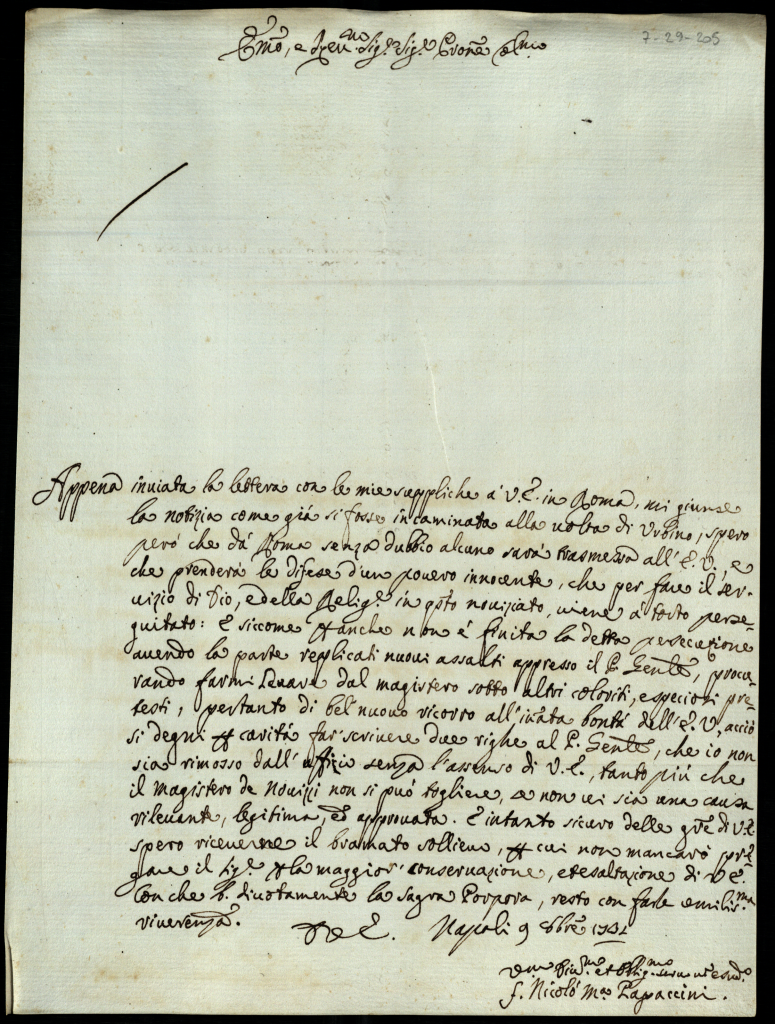 7-29-205
Em̃o, e Rev.mo Sig.r Sig.r P̃rone Col.mo
Appena inviata la lettera con le mie suppliche à V.E. in Roma, mi giunse
la notizia come già si fosse incaminata alla volta di Urbino, spero
però che dà Roma senza dubbio alcuno sarà trasmessa all' E.V. e
che prenderà le difese d'un povero innocente, che per fare il ser-
vizio di Dio, e della Relig.e in q̃sto noviziato, viene à torto perse-
guitato: E siccome p anche non è finita la detta persecuzione
avendo la parte replicati nuovi assalti appresso il P. Gen̄le, procu-
rando farmi levare dal magistero sotto altri coloriti, e speciosi pre-
testi, pertanto di bel nuovo ricorro all' in̄ata bontà dell' E.V, acciò
si degni p carità far scrivere due righe al P. Gen̄le, che io non
sia rimosso dall' uffizio senza l'assenso di V.E., tanto più che
il magistero de Novizzi non si può togliere, se non vi sia una causa
rilevante, legitima, ed approvata. E intanto sicuro delle gr̃e di V.E.
spero riceverne il bramato sollievo, p cui non mancarò pre-
gare il Sig.re p la maggior' conservazione, et esaltazione di V.E.
Con che b. divotamente la sagra Porpora, resto con farle umilis.ma
riverenza.
D V E. Napoli 9 8bre 1741
Div.mo et Oblig.mo
f. Nicolò M.a Papaccini.